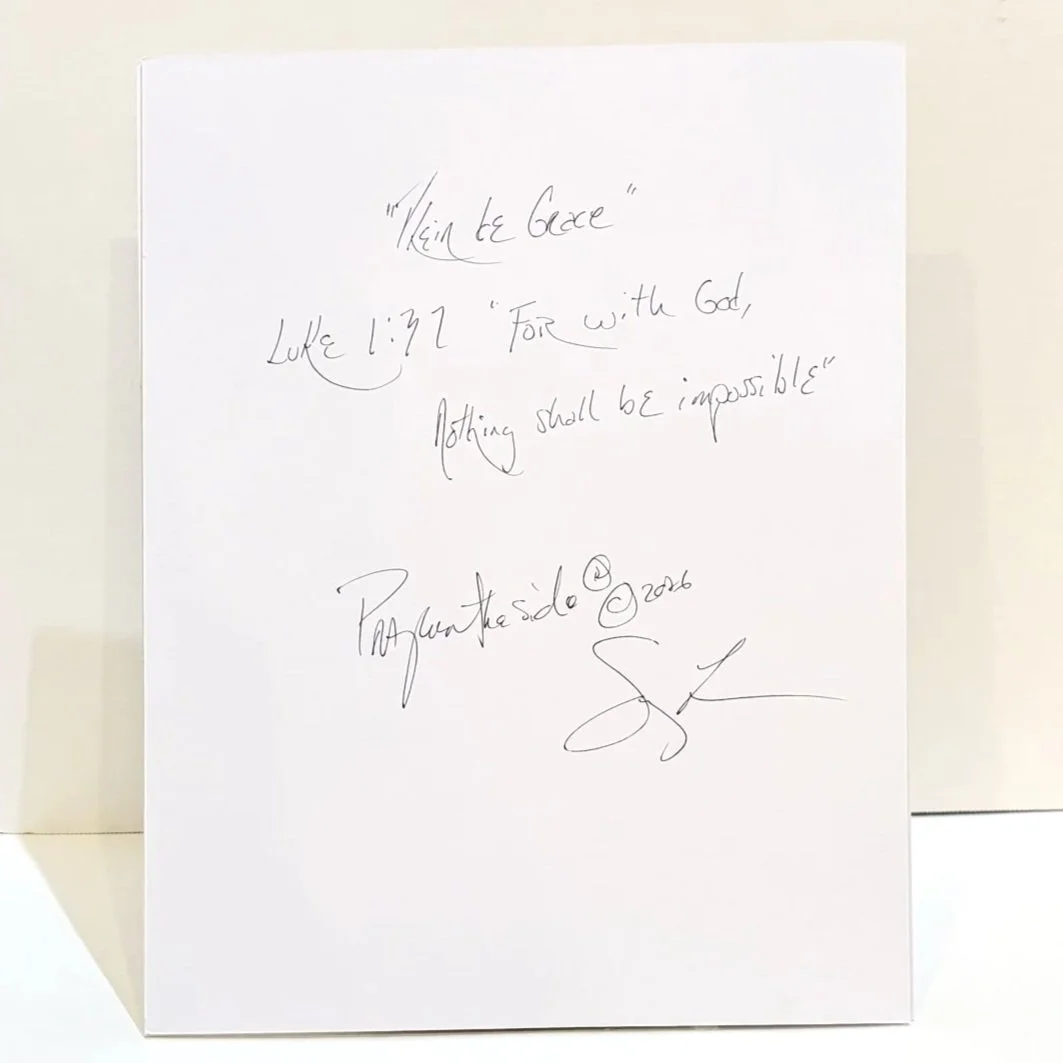 "Plein de Grace"
Luke 1:37 "For with God,
Nothing shall be impossible"
Prayluontheside ® © 2026